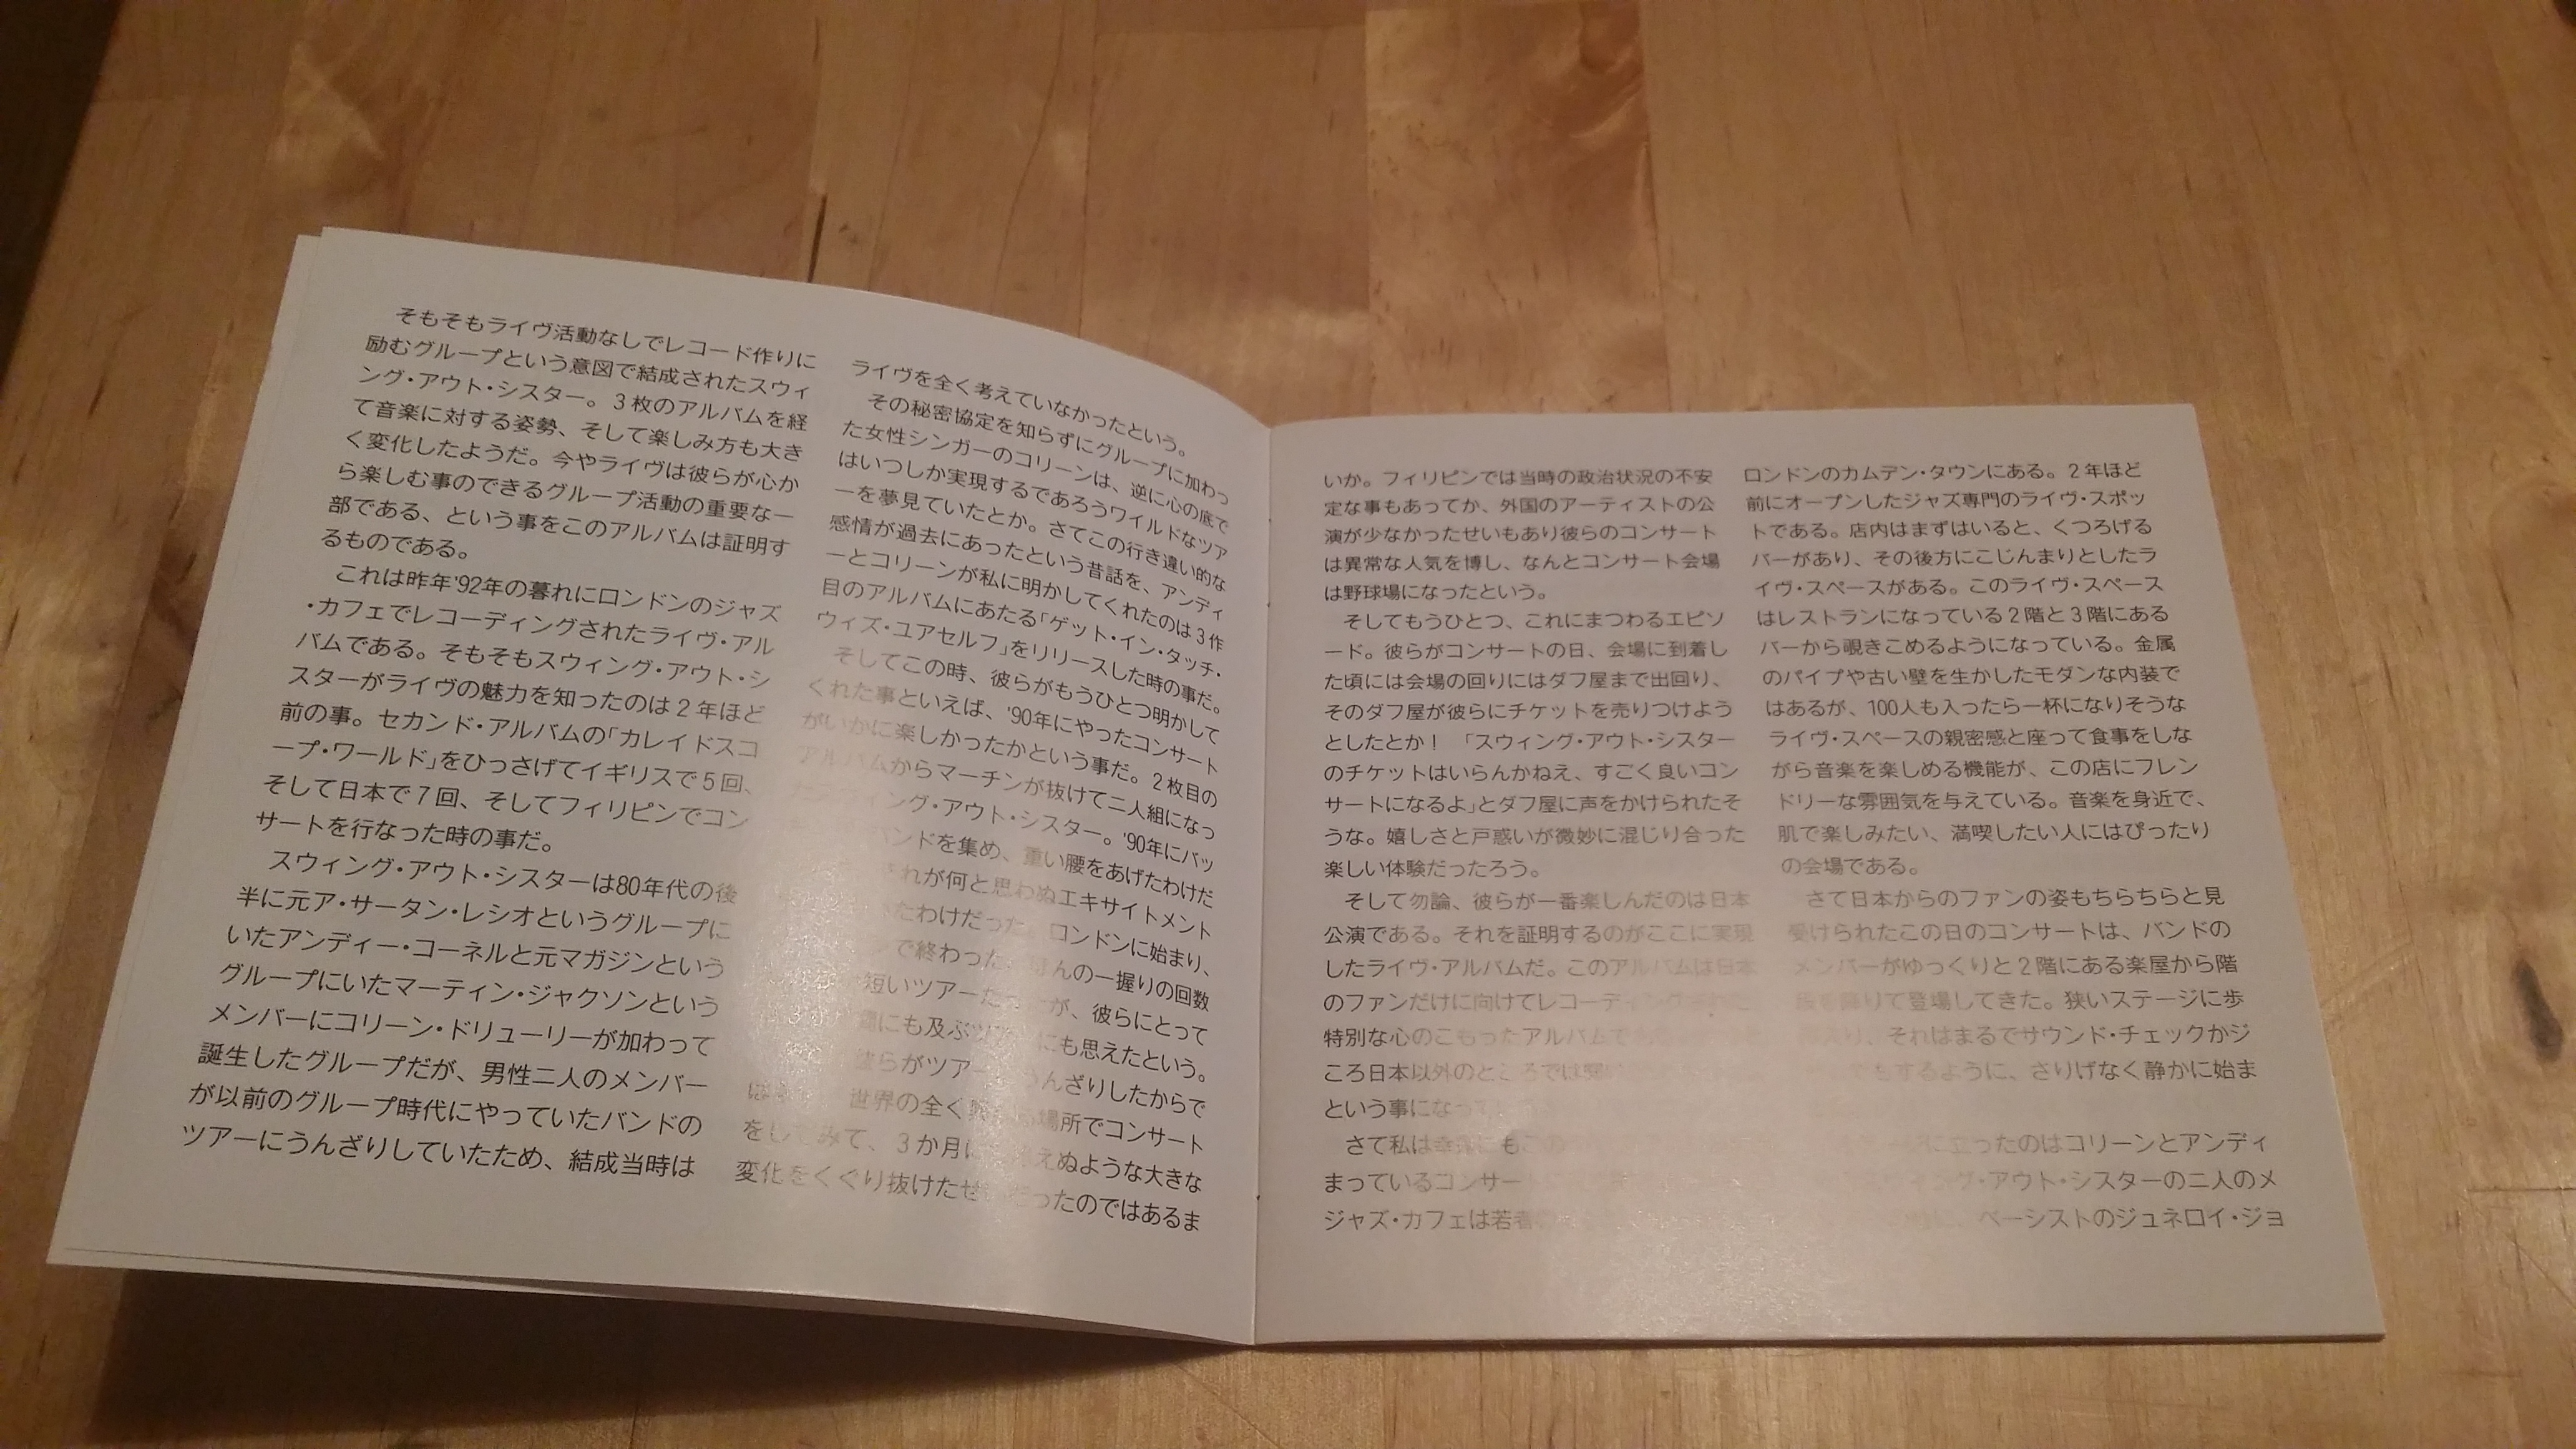 そもそもライヴ活動なしでレコード作りに
励むグループという意図で結成されたスウィ
ング・アウト・シスター。3枚のアルバムを経
て音楽に対する姿勢、そして楽しみ方も大き
く変化したようだ。今やライヴは彼らが心か
ら楽しむ事のできるグループ活動の重要な一
部である、という事をこのアルバムは証明す
るものである。
これは昨年'92年の暮れにロンドンのジャズ
・カフェでレコーディングされたライヴ・アル
バムである。そもそもスウィング・アウト・シ
スターがライヴの魅力を知ったのは2年ほど
前の事。セカンド・アルバムの「カレイドスコ
ープ・ワールド」をひっさげてイギリスで5回、
そして日本で7回、そしてフィリピンでコン
サートを行なった時の事だ。
スウィング・アウト・シスターは80年代の後
半に元ア・サータン・レシオというグループに
いたアンディー・コーネルと元マガジンという
グループにいたマーティン・ジャクソンという
メンバーにコリーン・ドリューリーが加わって
誕生したグループだが、男性二人のメンバー
が以前のグループ時代にやっていたバンドの
ツアーにうんざりしていたため、結成当時は
ライヴを全く考えていなかったという。
その秘密協定を知らずにグループに加わっ
た女性シンガーのコリーンは、逆に心の底で
はいつしか実現するであろうワイルドなツア
ーを夢見ていたとか。さてこの行き違い的な
感情が過去にあったという昔話を、アンディ
ーとコリーンが私に明かしてくれたのは3作
目のアルバムにあたる「ゲット・イン・タッチ・
ウィズ・ユアセルフ」をリリースした時の事だ。
そしてこの時、彼らがもうひとつ明かして
くれた事といえば、'90年にやったコンサート
がいかに楽しかったかという事だ。2枚目の
アルバムからマーチンが抜けて二人組になっ
ング・アウト・シスター。'90年にバッ
ンドを集め、重い腰をあげたわけだ
れが何と思わぬエキサイトメント
たわけだった。ロンドンに始まり、
で終わった、ほんの一握りの回数
短いツアーだったが、彼らにとって
にも及ぶ にも思えたという。
彼らがツアー うんざりしたからで
は 世界の全く 場所でコンサート
をしてみて、3か月に えぬような大きな
変化をくぐり抜けたせいだったのではあるま
いか。フィリピンでは当時の政治状況の不安
定な事もあってか、外国のアーティストの公
演が少なかったせいもあり彼らのコンサート
は異常な人気を博し、なんとコンサート会場
は野球場になったという。
そしてもうひとつ、これにまつわるエピソ
ード。彼らがコンサートの日、会場に到着し
た頃には会場の回りにはダフ屋まで出回り、
そのダフ屋が彼らにチケットを売りつけよう
としたとか！ 「スウィング・アウト・シスター
のチケットはいらんかねえ、すごく良いコン
サートになるよ」とダフ屋に声をかけられたそ
うな。嬉しさと戸惑いが微妙に混じり合った
楽しい体験だったろう。
そして勿論、彼らが一番楽しんだのは日本
公演である。それを証明するのがここに実現
したライヴ・アルバムだ。このアルバムは日本
のファンだけに向けてレコーディング
特別な心のこもったアルバムで
ころ日本以外のところでは発
という事になっ
さて私は幸運にもこの
まっているコンサー
ジャズ・カフェは若者
ロンドンのカムデン・タウンにある。2年ほど
前にオープンしたジャズ専門のライヴ・スポッ
トである。店内はまずはいると、くつろげる
バーがあり、その後方にこじんまりとしたラ
イヴ・スペースがある。このライヴ・スペース
はレストランになっている2階と3階にある
バーから覗きこめるようになっている。金属
のパイプや古い壁を生かしたモダンな内装で
はあるが、100人も入ったら一杯になりそうな
ライヴ・スペースの親密感と座って食事をしな
がら音楽を楽しめる機能が、この店にフレン
ドリーな雰囲気を与えている。音楽を身近で、
肌で楽しみたい、満喫したい人にはぴったり
の会場である。
さて日本からのファンの姿もちらちらと見
受けられたこの日のコンサートは、バンドの
メンバーがゆっくりと2階にある楽屋から階
段を降りて登場してきた。狭いステージに歩
り、それはまるでサウンド・チェックかジ
もするように、さりげなく静かに始ま
に立ったのはコリーンとアンディ
ング・アウト・シスターの二人のメ
ベーシストのジュネロイ・ジョ